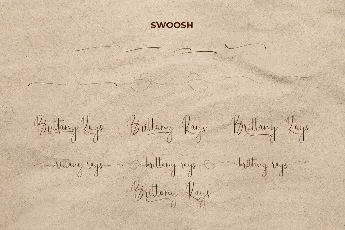 SWOOSH
Brittany Rays Brittany Rays Brittany Rays
brittany rays brittany rays brittany rays
Brittany Rays